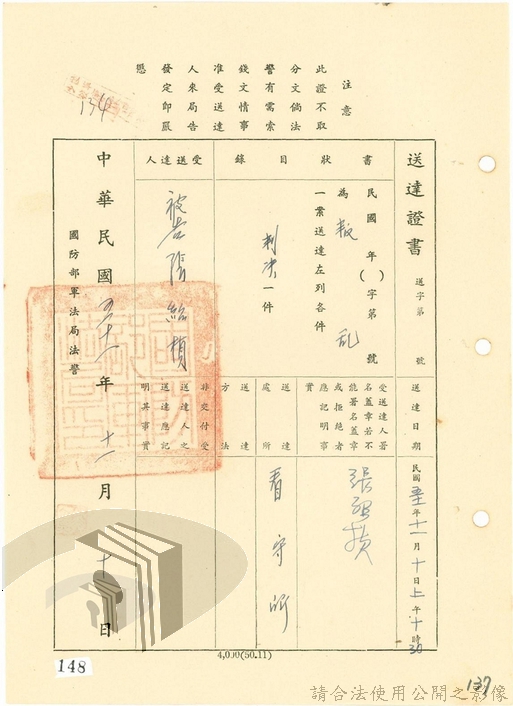 注意
此證不取
分文倘法
警有需索
錢文情事
准受送達
人來局告
發定即嚴
懲
134
送達證書
送字第 號
書狀目錄
受送達人
民國 年( )字第 號
為 叛乱
一案送達左列各件
判决一件
被告
送達日期
民國 五十一 年 十一 月 十 日 上 午 十 時 30
受送達人不
名蓋章若不
能署名蓋章
或拒絕者
應記明事
實
送達處所
看守所
送達方法
非交付受
送達人之
送達應記
明其事實
中華民國 五十一 年 十一 月 十 日
國防部軍法局法警
4,000(50.11)
148
137
請合法使用公開之影像